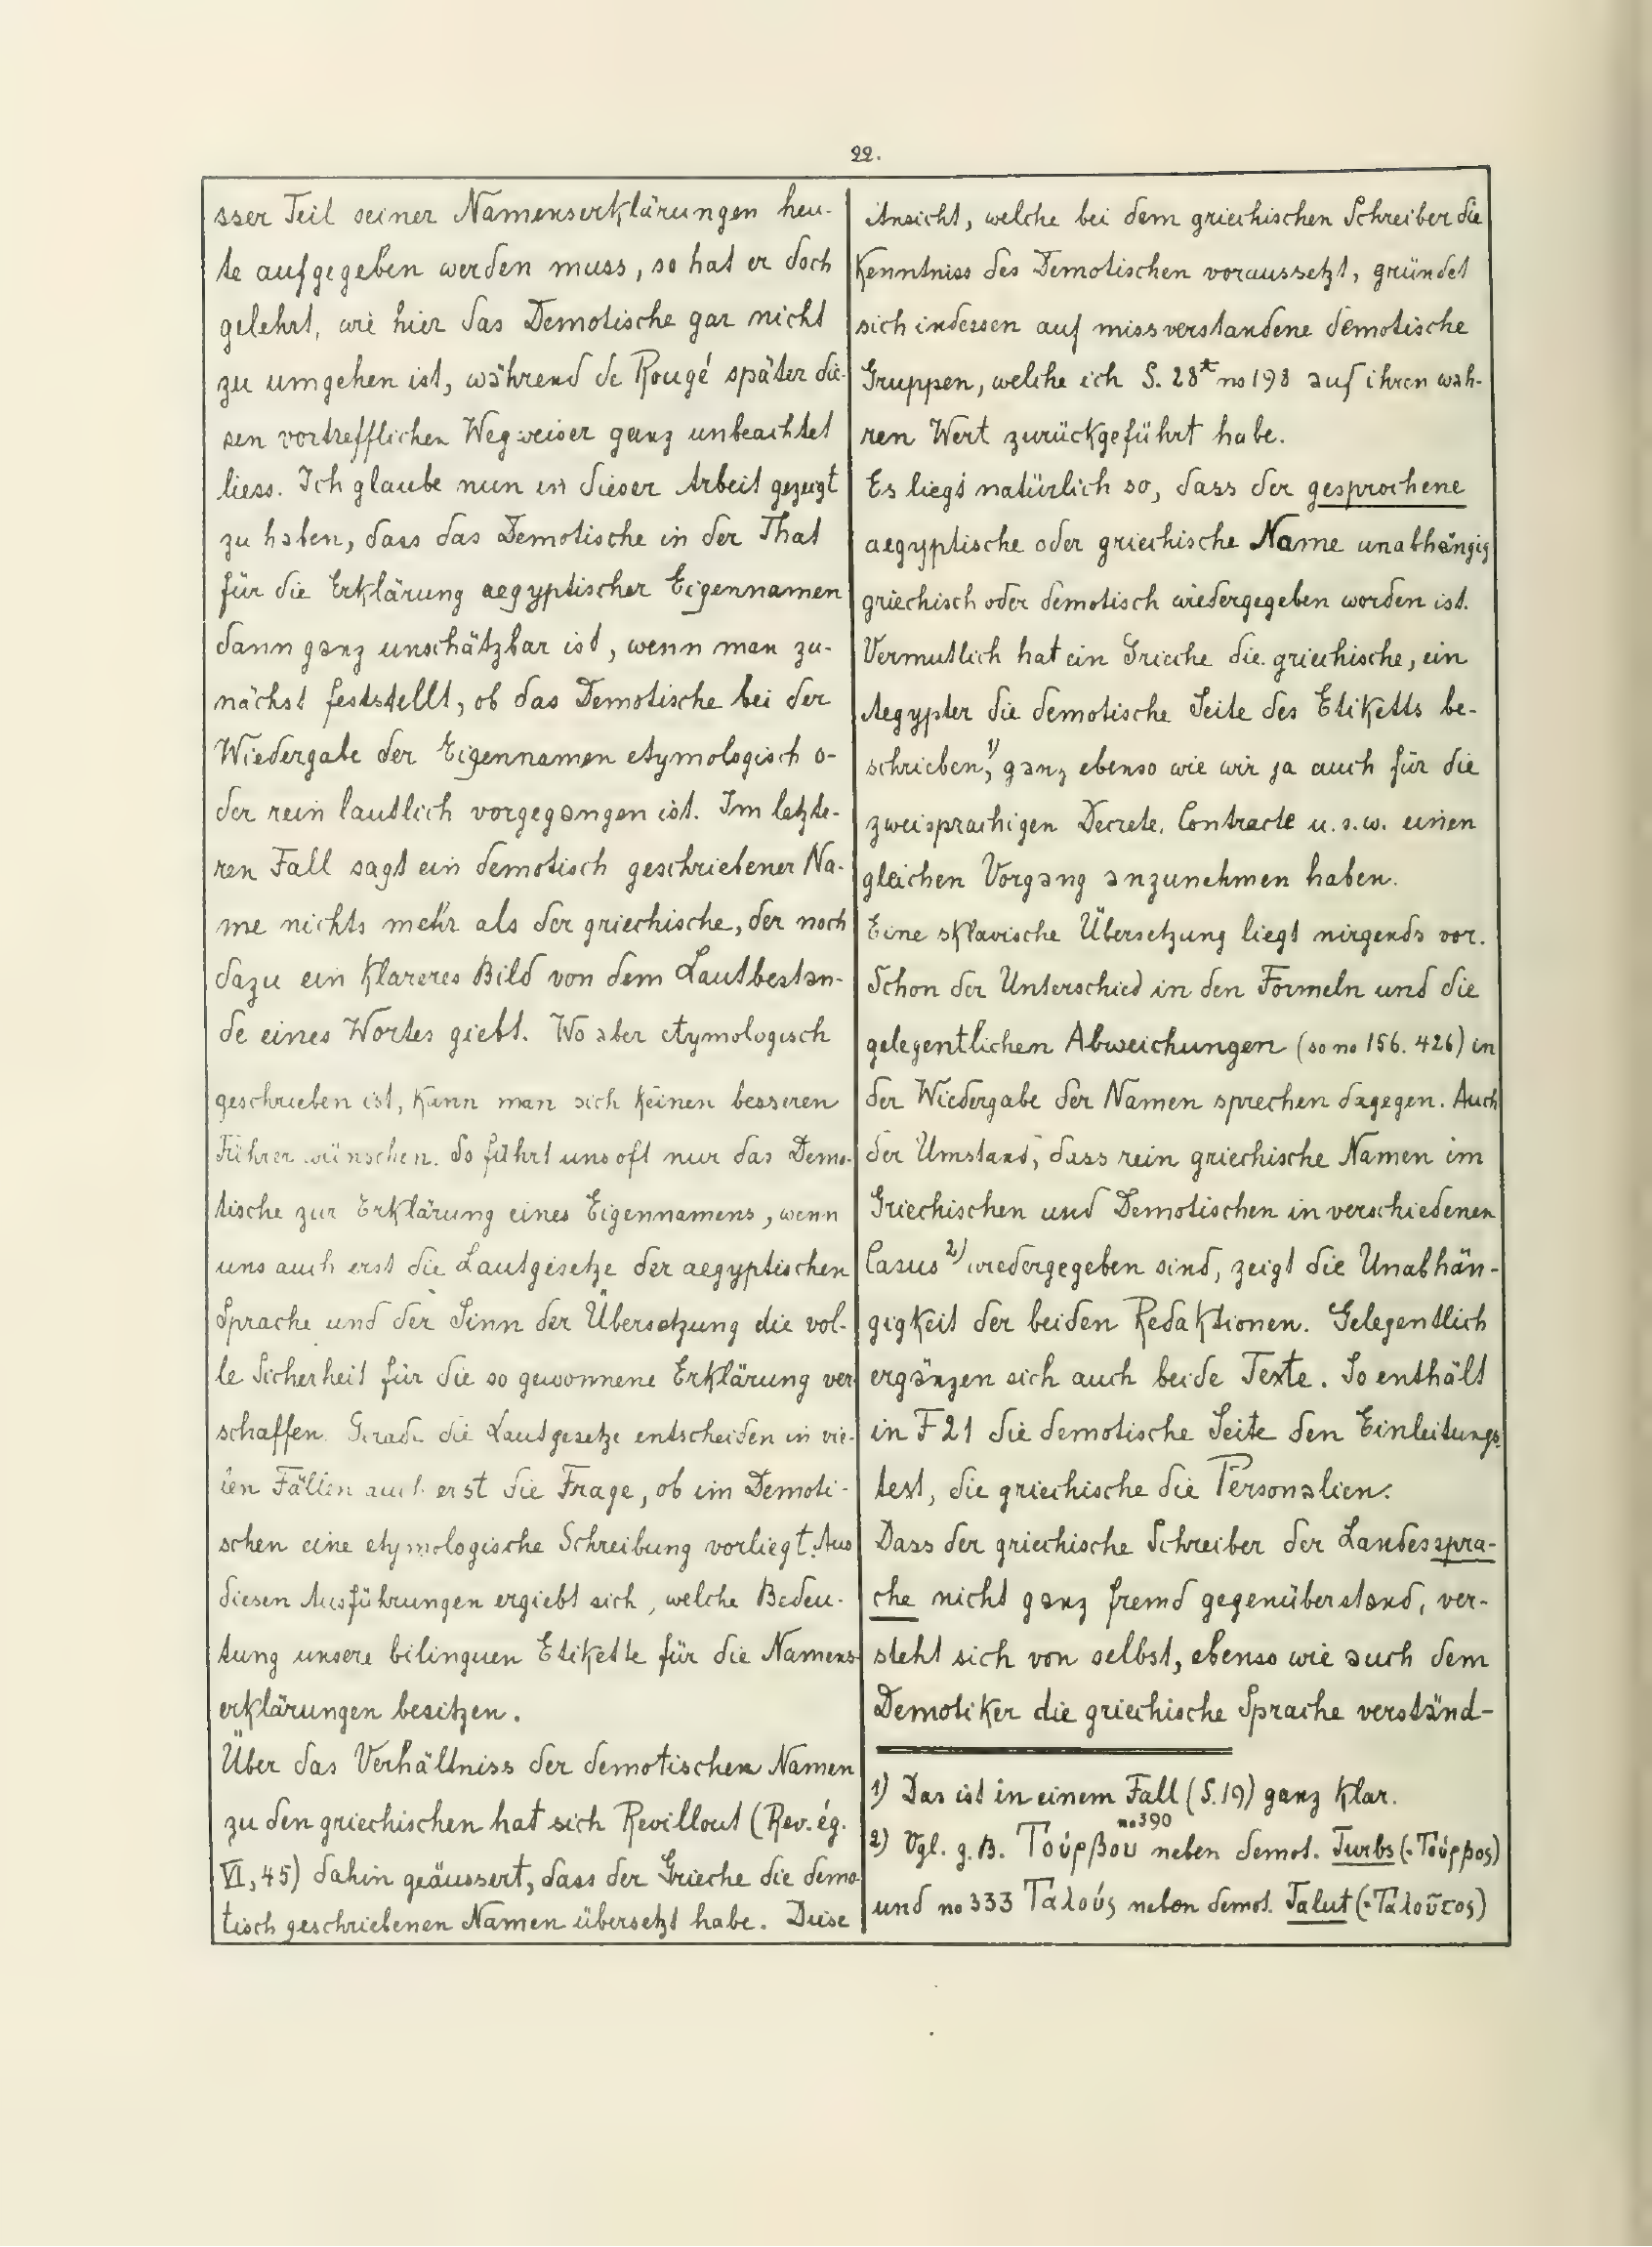 22.
sser Teil seiner Namenserklärungen heu-
te aufgegeben werden muss, so hat er doch
gelehrt, wie hier das Demotische gar nicht
zu umgehen ist, während de Rougé später die-
sen vortrefflichen Wegweiser ganz unbeachtet
liess. Ich glaube nun in dieser Arbeit gezeigt
zu haben, dass das Demotische in der That
für die Erklärung aegyptischer Eigennamen
dann ganz unschätzbar ist, wenn man zu-
nächst feststellt, ob das Demotische bei der
Wiedergabe der Eigennamen etymologisch o-
der rein lautlich vorgegangen ist. Im letzte-
ren Fall sagt ein demotisch geschriebener Na-
me nichts mehr als der griechische, der noch
dazu ein klareres Bild von dem Lautbestan-
de eines Wortes giebt. Wo aber etymologisch
geschrieben ist, kann man sich keinen besseren
Führer wünschen. So führt uns oft nur das Demo-
tische zur Erklärung eines Eigennamens, wenn
uns auch erst die Lautgesetze der aegyptischen
Sprache und der Sinn der Übersetzung die vol-
le Sicherheit für die so gewonnene Erklärung ver
schaffen. Gerade die Lautgesetze entscheiden in vie-
len Fällen auch erst die Frage, ob im Demoti-
schen eine etymologische Schreibung vorliegt. Aus
diesen Ausführungen ergiebt sich, welche Bedeu-
tung unsere bilinguen Etikette für die Namens
erklärungen besitzen.
Über das Verhältniss der demotischen Namen
zu den griechischen hat sich Revillout (Rev. ég.
VI, 45) dahin geäussert, dass der Grieche die demo
tisch geschriebenen Namen übersetzt habe. Diese
Ansicht, welche bei dem griechischen Schreiber die
Kenntniss des Demotischen voraussetzt, gründet
sich indessen auf missverstandene demotische
Gruppen, welche ich S. 28* no 198 auf ihren wah-
ren Wert zurückgeführt habe.
Es liegt natürlich so, dass der gesprochene
aegyptische oder griechische Name unabhängig
griechisch oder demotisch wiedergegeben worden ist.
Vermutlich hat ein Grieche die griechische, ein
Aegypter die demotische Seite des Etiketts be-
schrieben,1) ganz ebenso wie wir ja auch für die
zweisprachigen Decrete, Contracte u. s. w. einen
gleichen Vorgang anzunehmen haben.
Eine sklavische Übersetzung liegt nirgends vor.
Schon der Unterschied in den Formeln und die
gelegentlichen Abweichungen (so no 156. 426) in
der Wiedergabe der Namen sprechen dagegen. Auch
der Umstand, dass rein griechische Namen im
Griechischen und Demotischen in verschiedenen
Casus 2) wiedergegeben sind, zeigt die Unabhän-
gigkeit der beiden Redaktionen. Gelegentlich
ergänzen sich auch beide Texte. So enthält
in F 21 die demotische Seite den Einleitungs
text, die griechische die Personalien.
Dass der griechische Schreiber der Landesspra-
che nicht ganz fremd gegenüberstand, ver-
steht sich von selbst, ebenso wie auch dem
Demotiker die griechische Sprache verständ-
1) Das ist in einem Fall (S. 19) ganz klar.
no 390
2) Vgl. z. B. Τούρβου neben demot. Turbs (= Τούρβος)
und no 333 Ταλούς neben demot. Talut (= Ταλοῦτος)